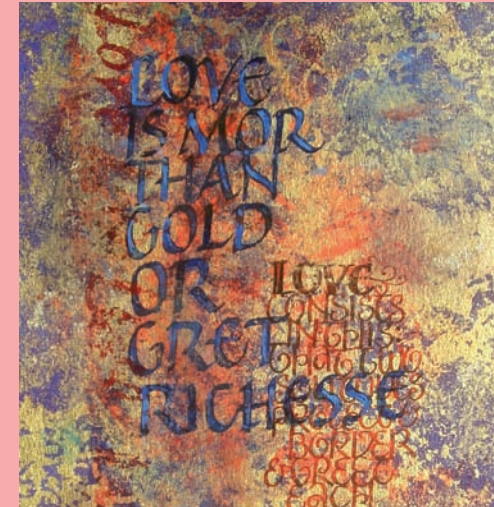 LOVE
IS MOR
THAN
GOLD
OR
GRET
RICHESSE
LOVE
CONSISTS
IN THIS:
THAT TWO
BORDER
& GREET
EACH